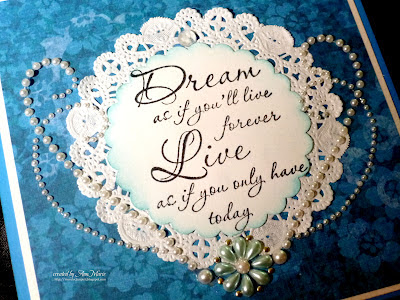 Dream
as if you'll live
forever
Live
as if you only have
today
created by Ann Marie